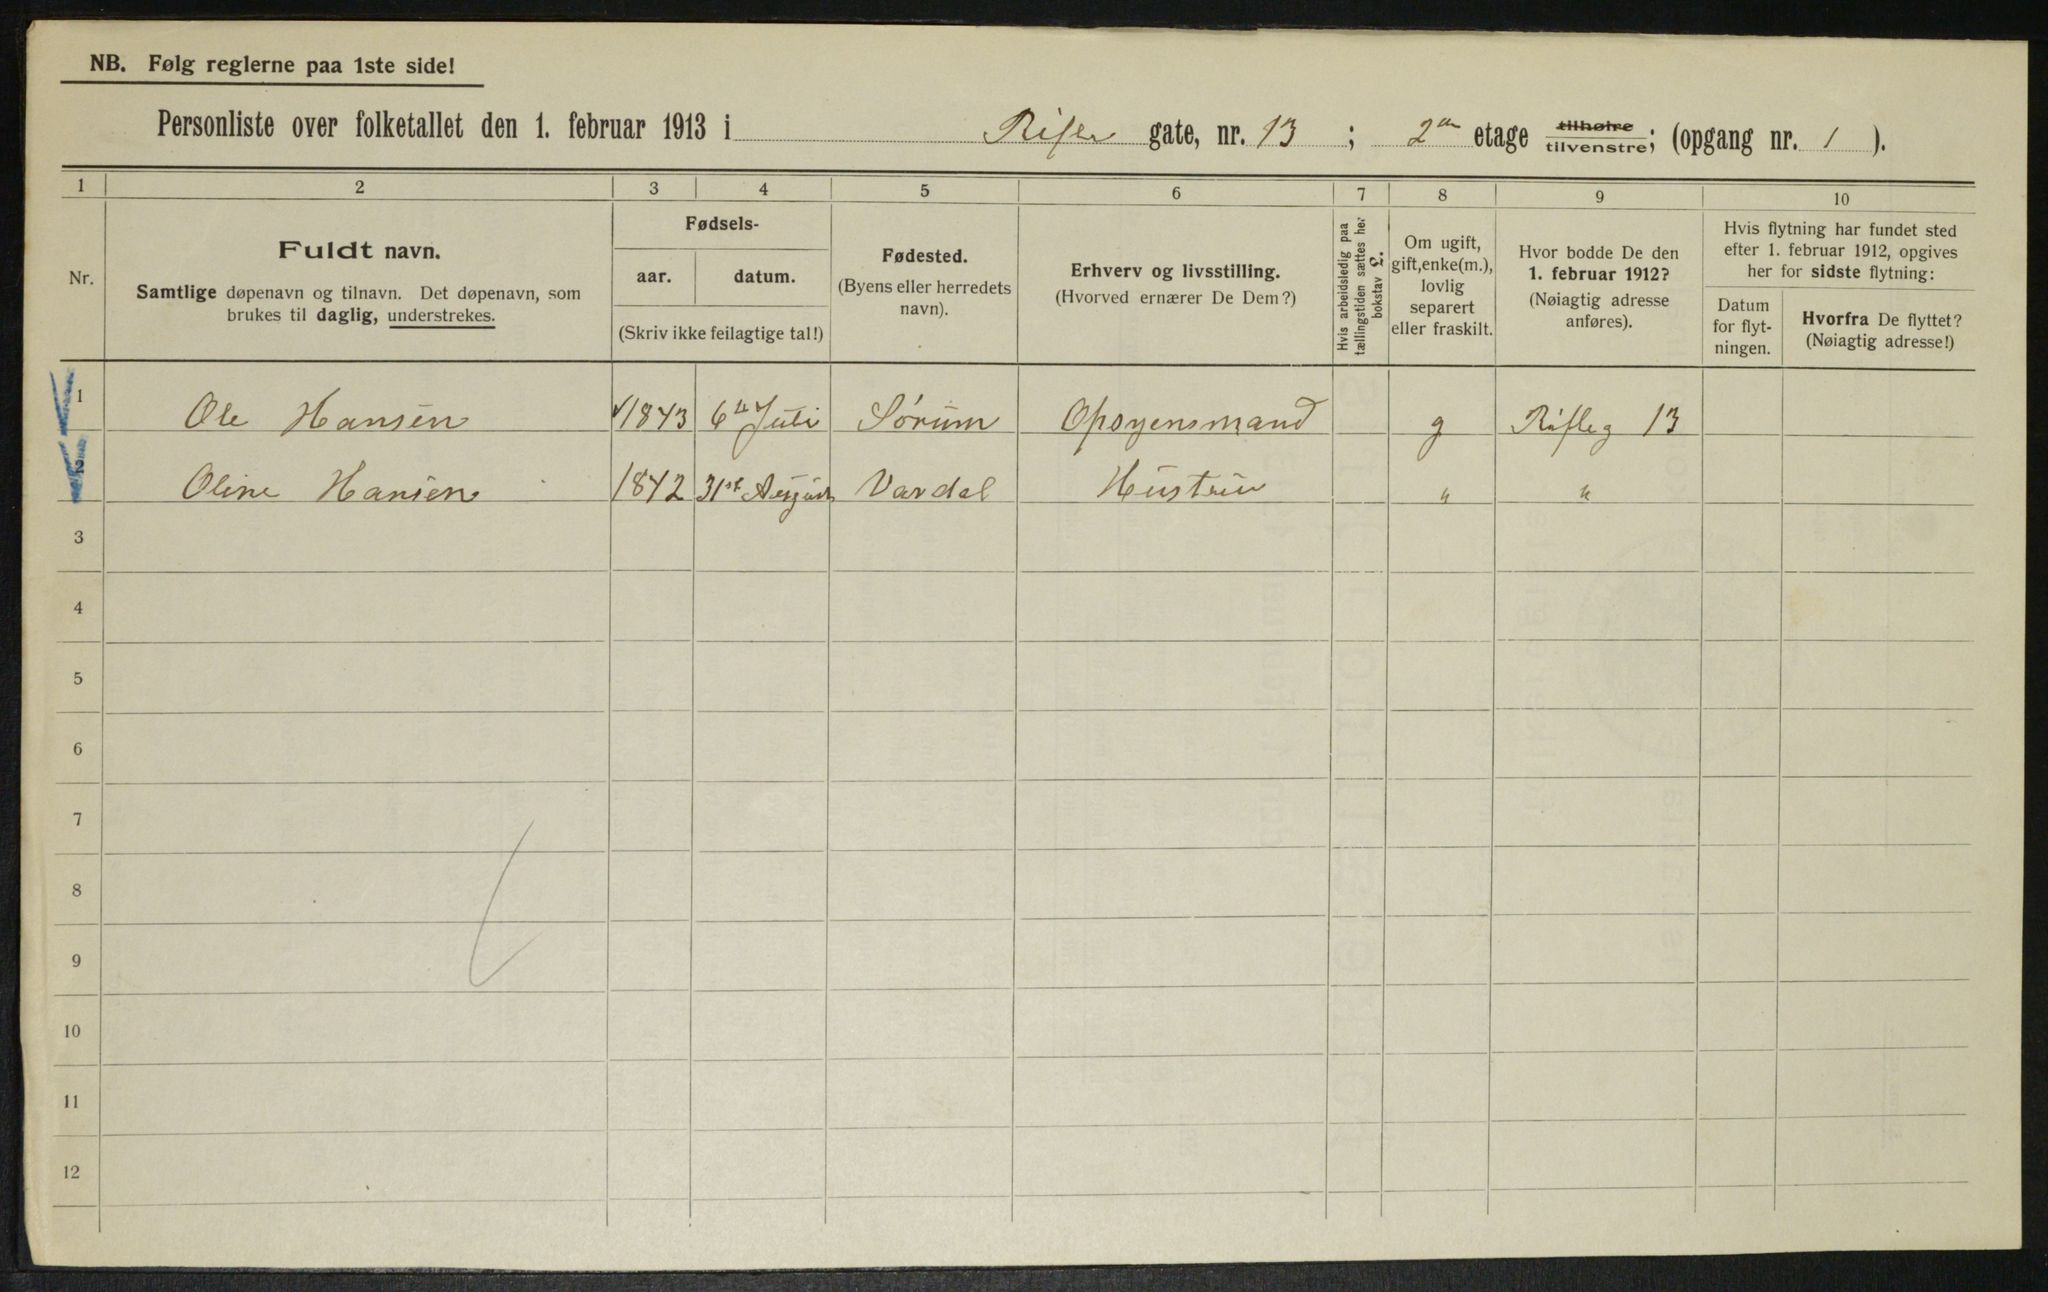 NB. Følg reglerne paa 1ste side!
Personliste over folketallet den 1. februar 1913 i Rifle gate, nr. 13 ; 2en etage tilhøire tilvenstre; (opgang nr. 1 ).
1 2 3 4 5 6 7 8 9 10
Nr.
Fuldt navn.
Samtlige døpenavn og tilnavn. Det døpenavn, som
brukes til daglig, understrekes.
Fødsels-
aar. datum.
(Skriv ikke feilagtige tal!)
Fødested.
(Byens eller herredets
navn).
Erhverv og livsstilling.
(Hvorved ernærer De Dem?)
Hvis arbeidsledig paa
tællingstiden sættes her
bokstav L.
Om ugift,
gift, enke(m.),
lovlig
separert
eller fraskilt.
Hvor bodde De den
1. februar 1912?
(Nøiagtig adresse
anføres).
Hvis flytning har fundet sted
efter 1. februar 1912, opgives
her for sidste flytning:
Datum
for flyt-
ningen.
Hvorfra De flyttet?
(Nøiagtig adresse!)
1 Ole Hansen 1843 6te Juli Sørum Opsynsmand g Rifleg 13
2 Oline Hansen 1842 31st August Vardal Hustru " "
3
4
5
6
7
8
9
10
11
12